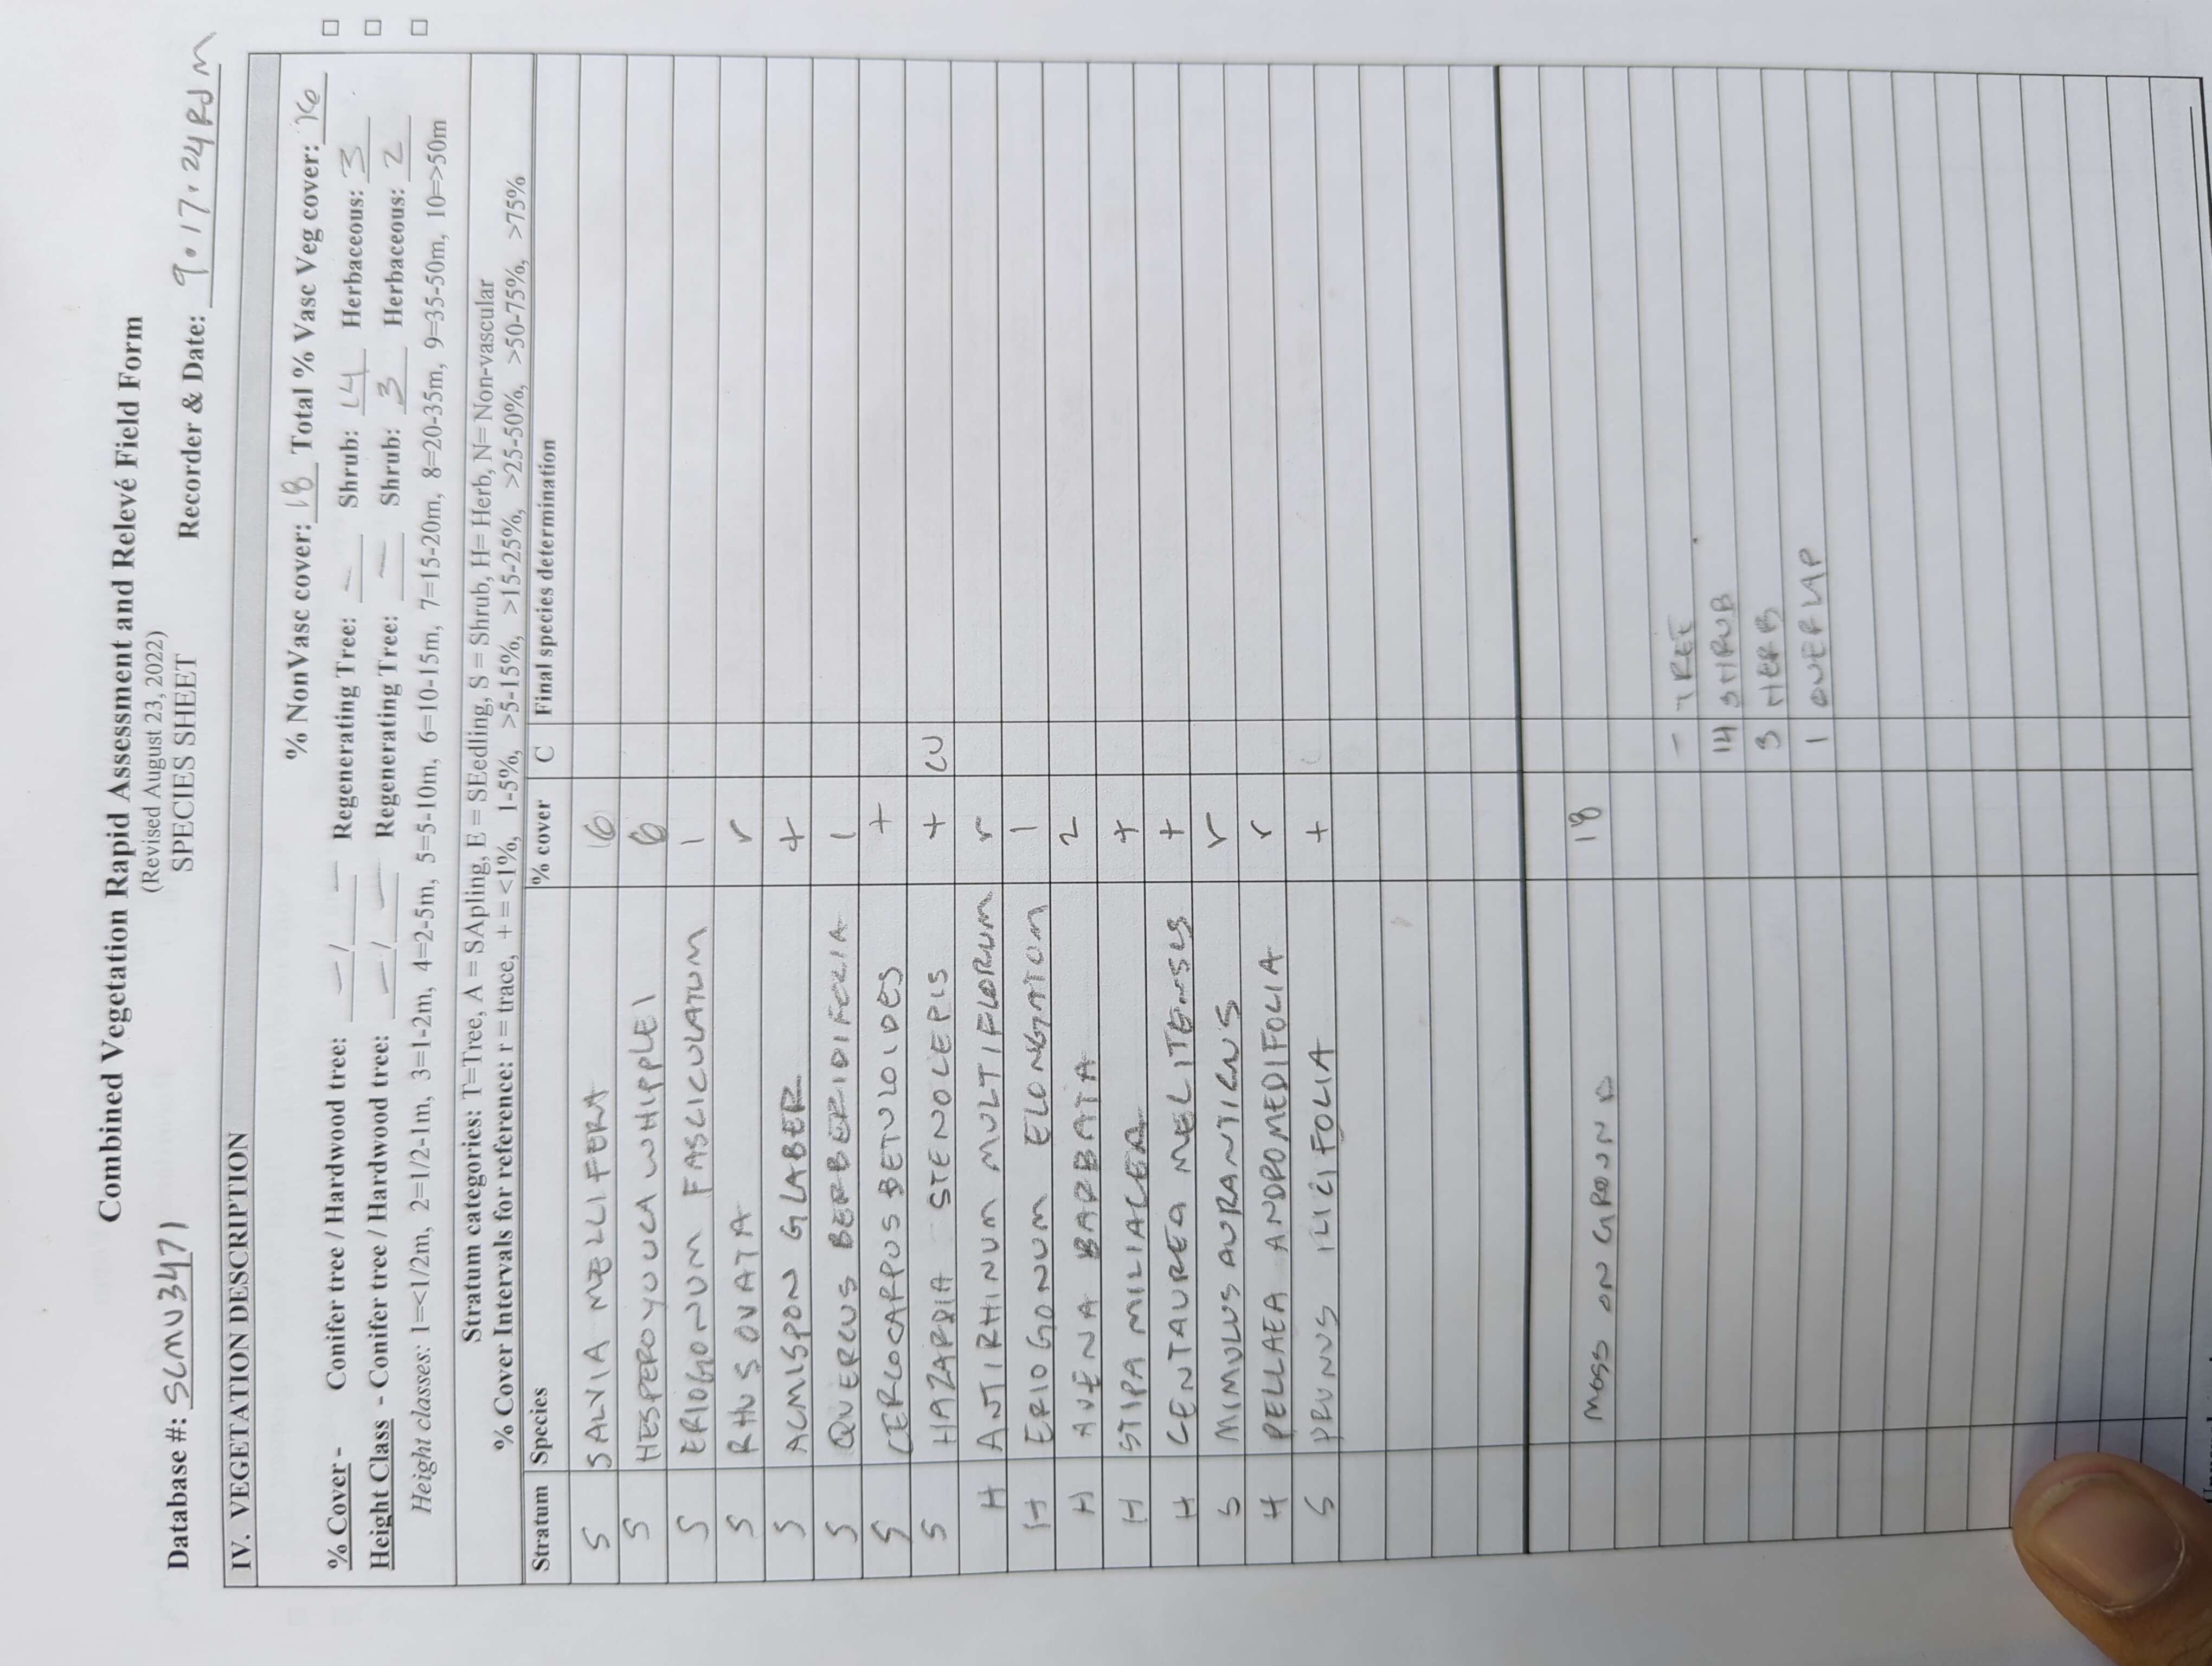 Combined Vegetation Rapid Assessment and Relevé Field Form
(Revised August 23, 2022)
SPECIES SHEET
Database #: SCMU3471 Recorder & Date: 9.17.24 RJM
IV. VEGETATION DESCRIPTION
% NonVasc cover: 18 Total % Vasc Veg cover: 16
% Cover - Conifer tree / Hardwood tree: — / — Regenerating Tree: — Shrub: 14 Herbaceous: 3
Height Class - Conifer tree / Hardwood tree: — / — Regenerating Tree: — Shrub: 3 Herbaceous: 2
Height classes: 1=<1/2m, 2=1/2-1m, 3=1-2m, 4=2-5m, 5=5-10m, 6=10-15m, 7=15-20m, 8=20-35m, 9=35-50m, 10=>50m
Stratum categories: T=Tree, A = SApling, E = SEedling, S = Shrub, H= Herb, N= Non-vascular
% Cover Intervals for reference: r = trace, + = <1%, 1-5%, >5-15%, >15-25%, >25-50%, >50-75%, >75%
Stratum Species % cover C Final species determination
S SALVIA MELLIFERA 6
S HESPEROYUCCA WHIPPLEI 6
S ERIOGONUM FASCICULATUM 1
S RHUS OVATA r
S ACMISPON GLABER +
S QUERCUS BERBERIDIFOLIA 1
S CERCOCARPUS BETULOIDES +
S HAZARDIA STENOLEPIS + CU
H ANTIRHINUM MULTIFLORUM r
H ERIOGONUM ELONGATUM 1
H AVENA BARBATA 2
H STIPA MILIACEA +
H CENTAUREA MELITENSIS +
S MIMULUS AURANTICUS r
H PELLAEA ANDROMEDIFOLIA r
S PRUNUS ILICIFOLIA +
MOSS ON GROUND 18
– TREE
14 SHRUB
3 HERB
1 OVERLAP